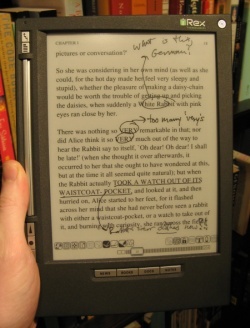 iRex
CHAPTER I
What a
pictures or conversation?'
So she was considering in her own mind (as well as she
could, for the hot day made her feel very sleepy and
stupid), whether the pleasure of making a daisy-chain
would be worth the trouble of getting up and picking
the daisies, when suddenly a White Rabbit with pink
eyes ran close by her.
too many very's
There was nothing so VERY remarkable in that; nor
did Alice think it so VERY much out of the way to
hear the Rabbit say to itself, 'Oh dear! Oh dear! I shall
be late!' (when she thought it over afterwards, it
occurred to her that she ought to have wondered at this,
but at the time it all seemed quite natural); but when
the Rabbit actually TOOK A WATCH OUT OF ITS
WAISTCOAT-POCKET, and looked at it, and then
hurried on, Alice started to her feet, for it flashed
across her mind that she had never before seen a rabbit
with either a waistcoat-pocket, or a watch to take out of
it, and burning with curiosity, she ran across the field